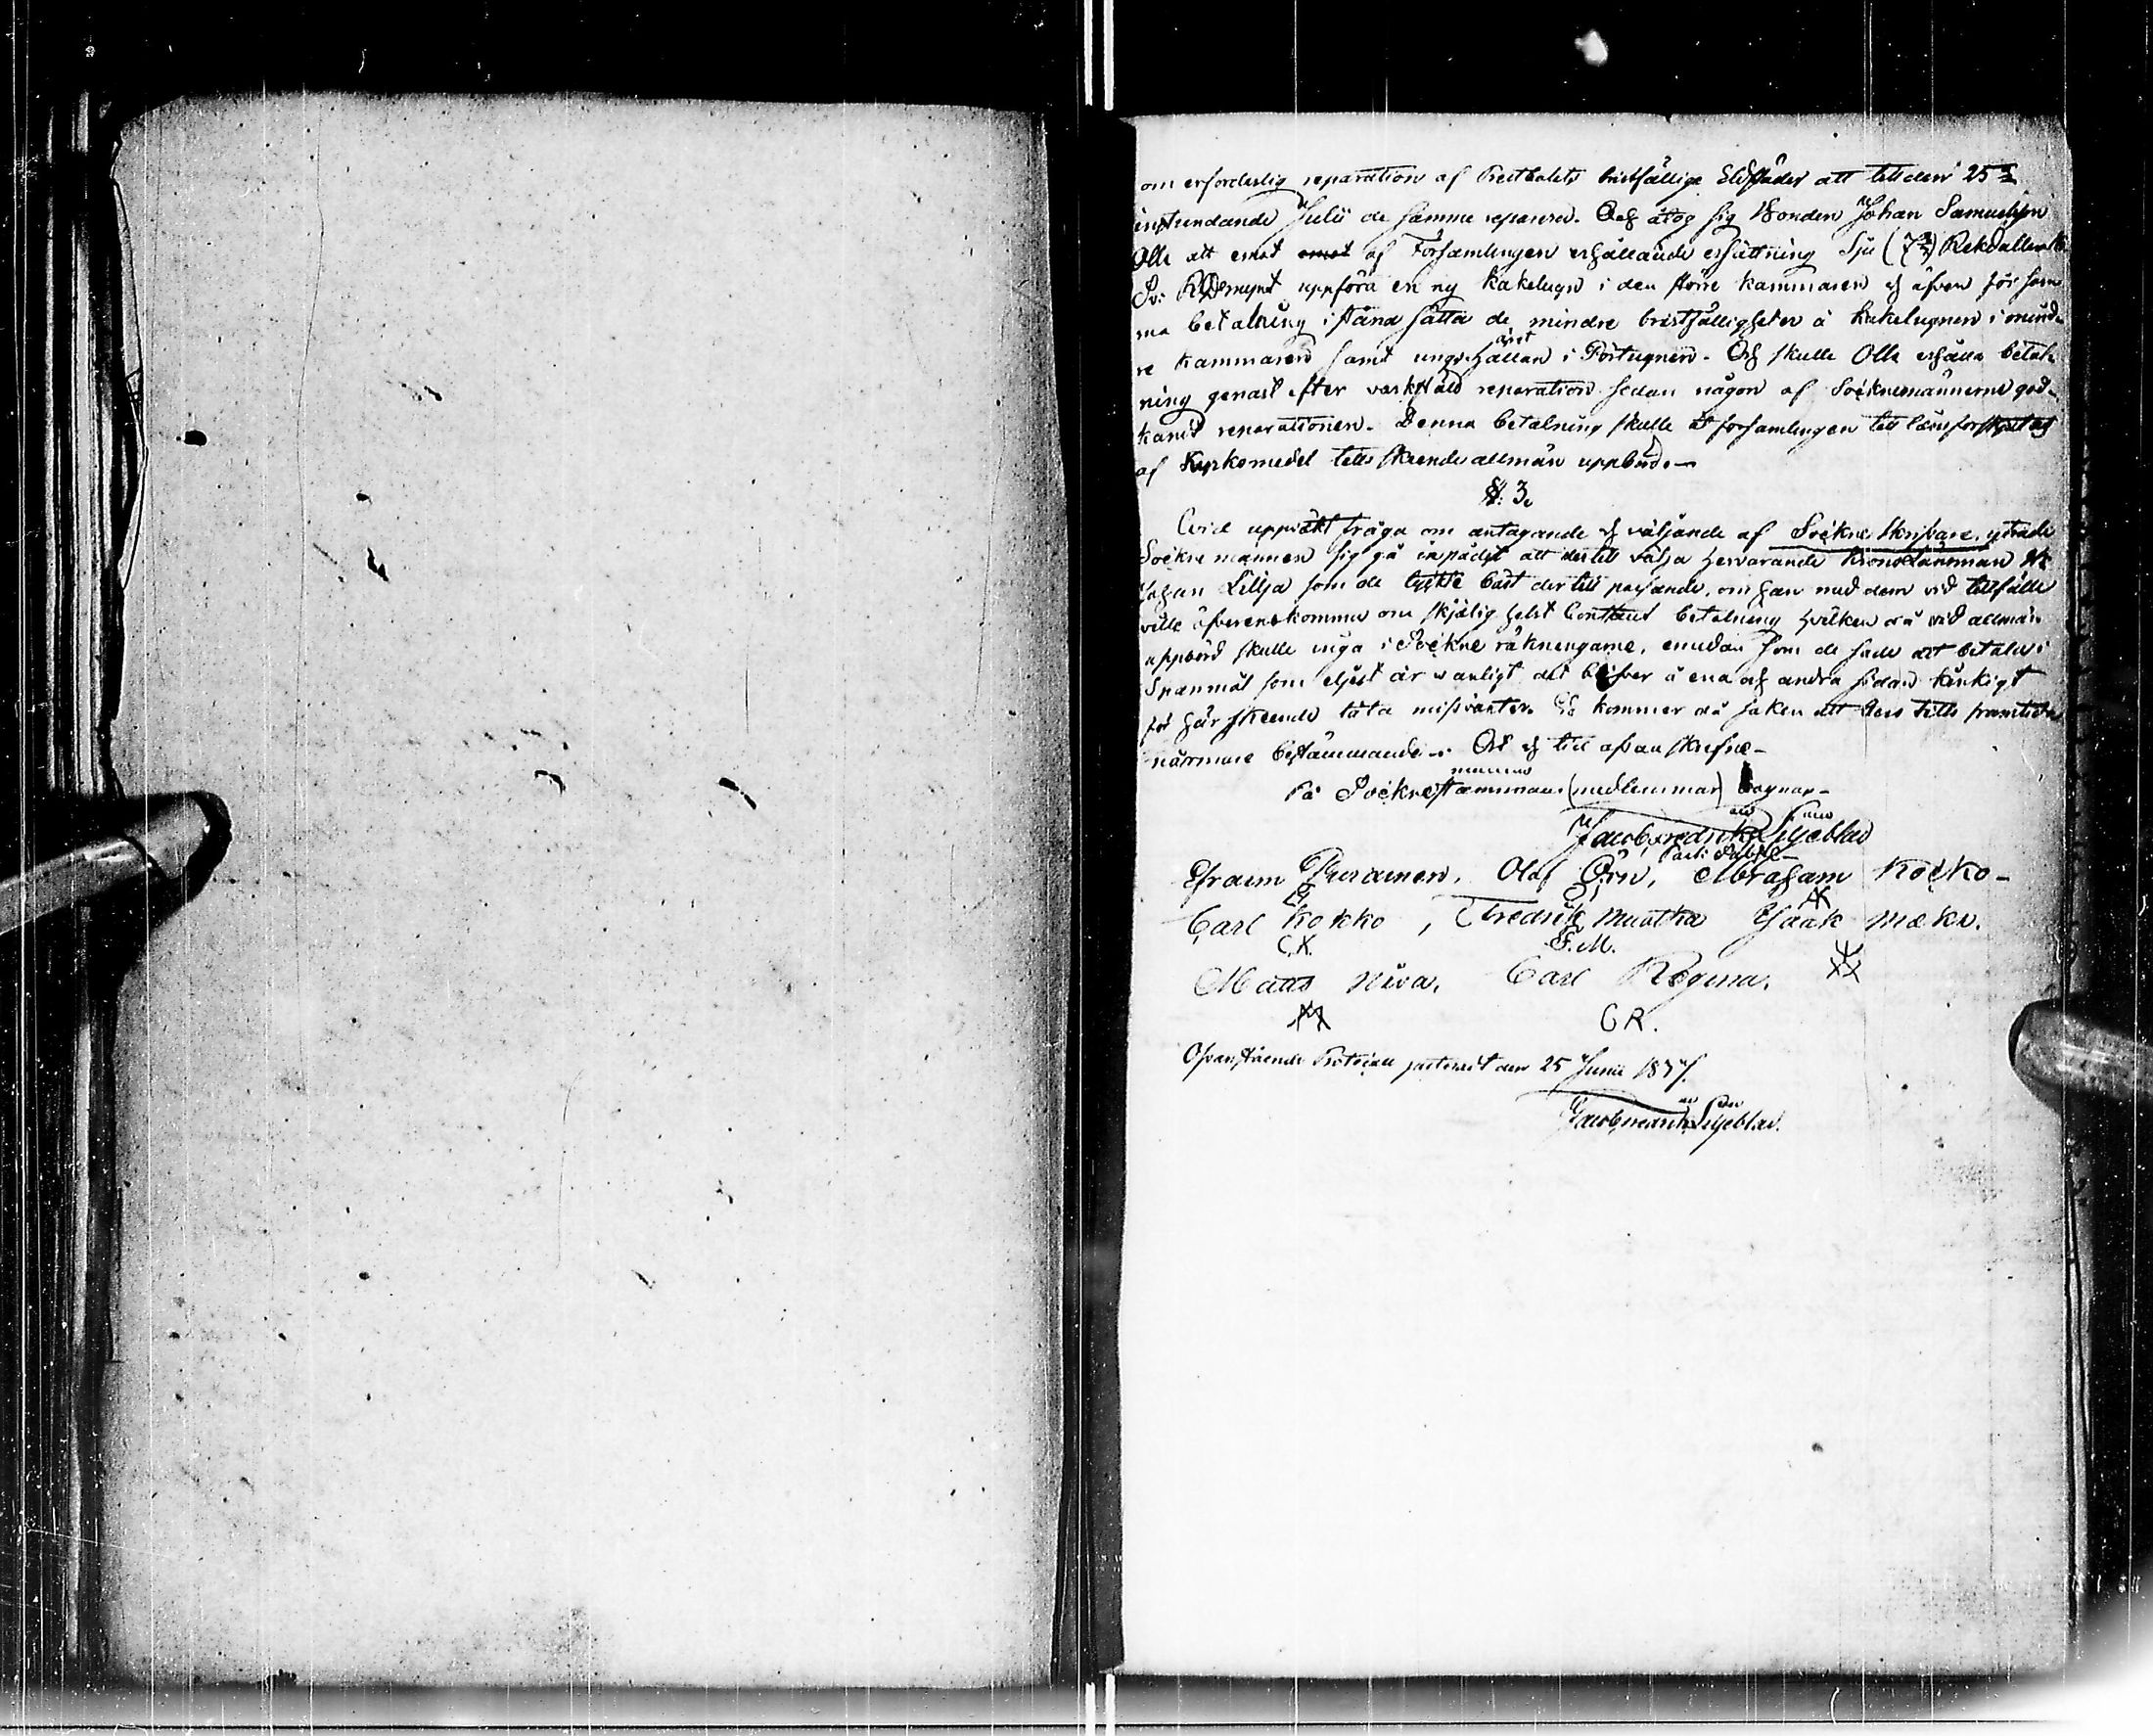 om erforderlig reparation af Prestbolets bristfällige Eldstäder att till den 25
instundande Julii de samma reparera. Och åtog sig Bonden Johan Samuelsson
Olli att emot emot af Församlingen erhållande ersättning Sju (7) Riksdaller
uppföra en ny kakelugn i den större kammaren och äfven för sam-
ma betalning i stånd sätta de mindre bristfälligheter å kakelugnen i mind-
re kammaren samt ugns hällan i Förstugnen. Och skulle Olli erhålla betal-
ning genast efter verkställd reparation sedan någon af Socknemännerne god-
känt reparationen. Denna betalning skulle åt församlingen till låns förskjutas
af Kyrkomedel tills skeende allmän uppbörd.—
§. 3.
Wid uppväckt fråga om antagande och väljande af Sockne Skrifvare, yttrade
Sockne mannen sig på det att dertill välja hervarande KronoLänsman Hr
Johan Lillja som de tyckte bäst der till passande, om han med dem vid tillfälle
ville öfverenskomma om skjälig helst Contant betalning hvilken då vid allmän
uppbörd skulle ingå i Sockne räkningarne, emedan som de sade att betala i
Spanmål som eljest är vanligt det blifver å ena och andra sidan kinkigt
för här skeende täta missväxter. Så kommer då saken att bero tills framtida
närmare bestämmande.. Ort och tid som ofvan skrefne—
På Socknestämmans (medlemmar) vägnar—
männens
Jacob Fredrik Liljeblad
Efraim Olof Örn, Abraham Kocko—
Carl Kokko, Fredrik Muotka Isaak Mäki.
C. K. F. M.
Matts Niva. Carl Regina.
C R.
Ofvanstående Protocoll justerat den 25 Junii 1837.
Jacob Fredrik Liljeblad.